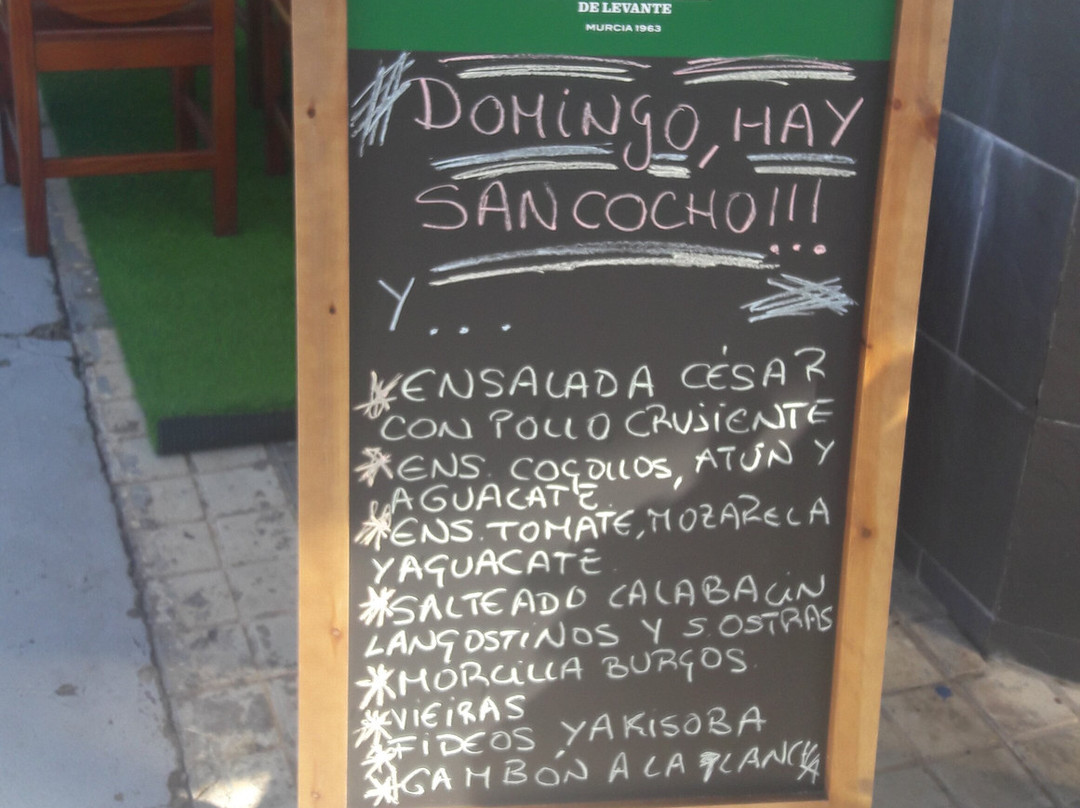 DE LEVANTE
MURCIA 1963
DOMiNgO, HAY
SANCOCHO!!!...
Y...
*ENSALADA CÉSAR
CON POLLO CRUJIENTE
*ENS. COGOLLOS, ATÚN Y
AGUACATE.
*ENS. TOMATE, MOZARELA
Y AGUACATE.
*SALTEADO CALABACIN
LANGOSTINOS Y S. OSTRAS
*MORCILLA BURGOS.
*VIEIRAS
*FIDEOS YAKISOBA
*GAMBÓN A LA PLANCHA